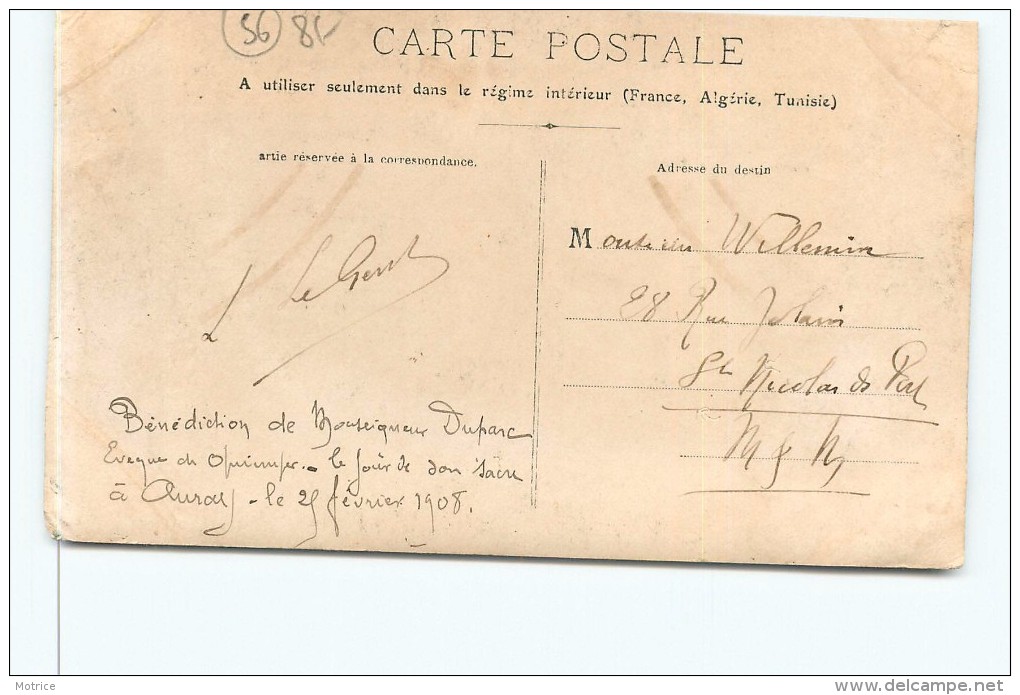 56 85
CARTE POSTALE
A utiliser seulement dans le régime intérieur (France, Algérie, Tunisie)
artie réservée à la correspondance.
Adresse du destin
Le Gent
Bénédiction de Monseigneur Duparc
Eveque de Quimper - le jour de son sacre
à Auray - le 25 février 1908.
Monsieur Willemin
28 Rue Jolain
St Nicolas de Port
M & M
Motrice
delcampe.net